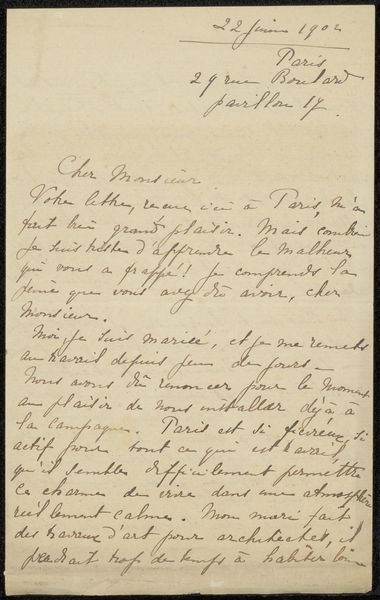 22 juin 1902
Paris
29 rue Boulard
pavillon 17.
Cher Monsieur
Votre lettre, recue ici à Paris, m'a
fait très grand plaisir. Mais combien
je suis triste d'apprendre le malheur
qui vous a frappé! Je comprends la
peine que vous avez dû avoir, cher
Monsieur.
Moi, je suis mariée, et je me remets
au travail depuis peu de jours.
Nous avons dû renoncer pour le moment
au plaisir de nous installer déjà à
la campagne. Paris est si fiévreux, si
actif pour tout ce qui est travail,
qu'il semble difficilement permettre
ce charme de vivre dans une atmosphère
réellement calme. Mon mari fait
des travaux d'art pour architectes, il
perdrait trop de temps à habiter loin